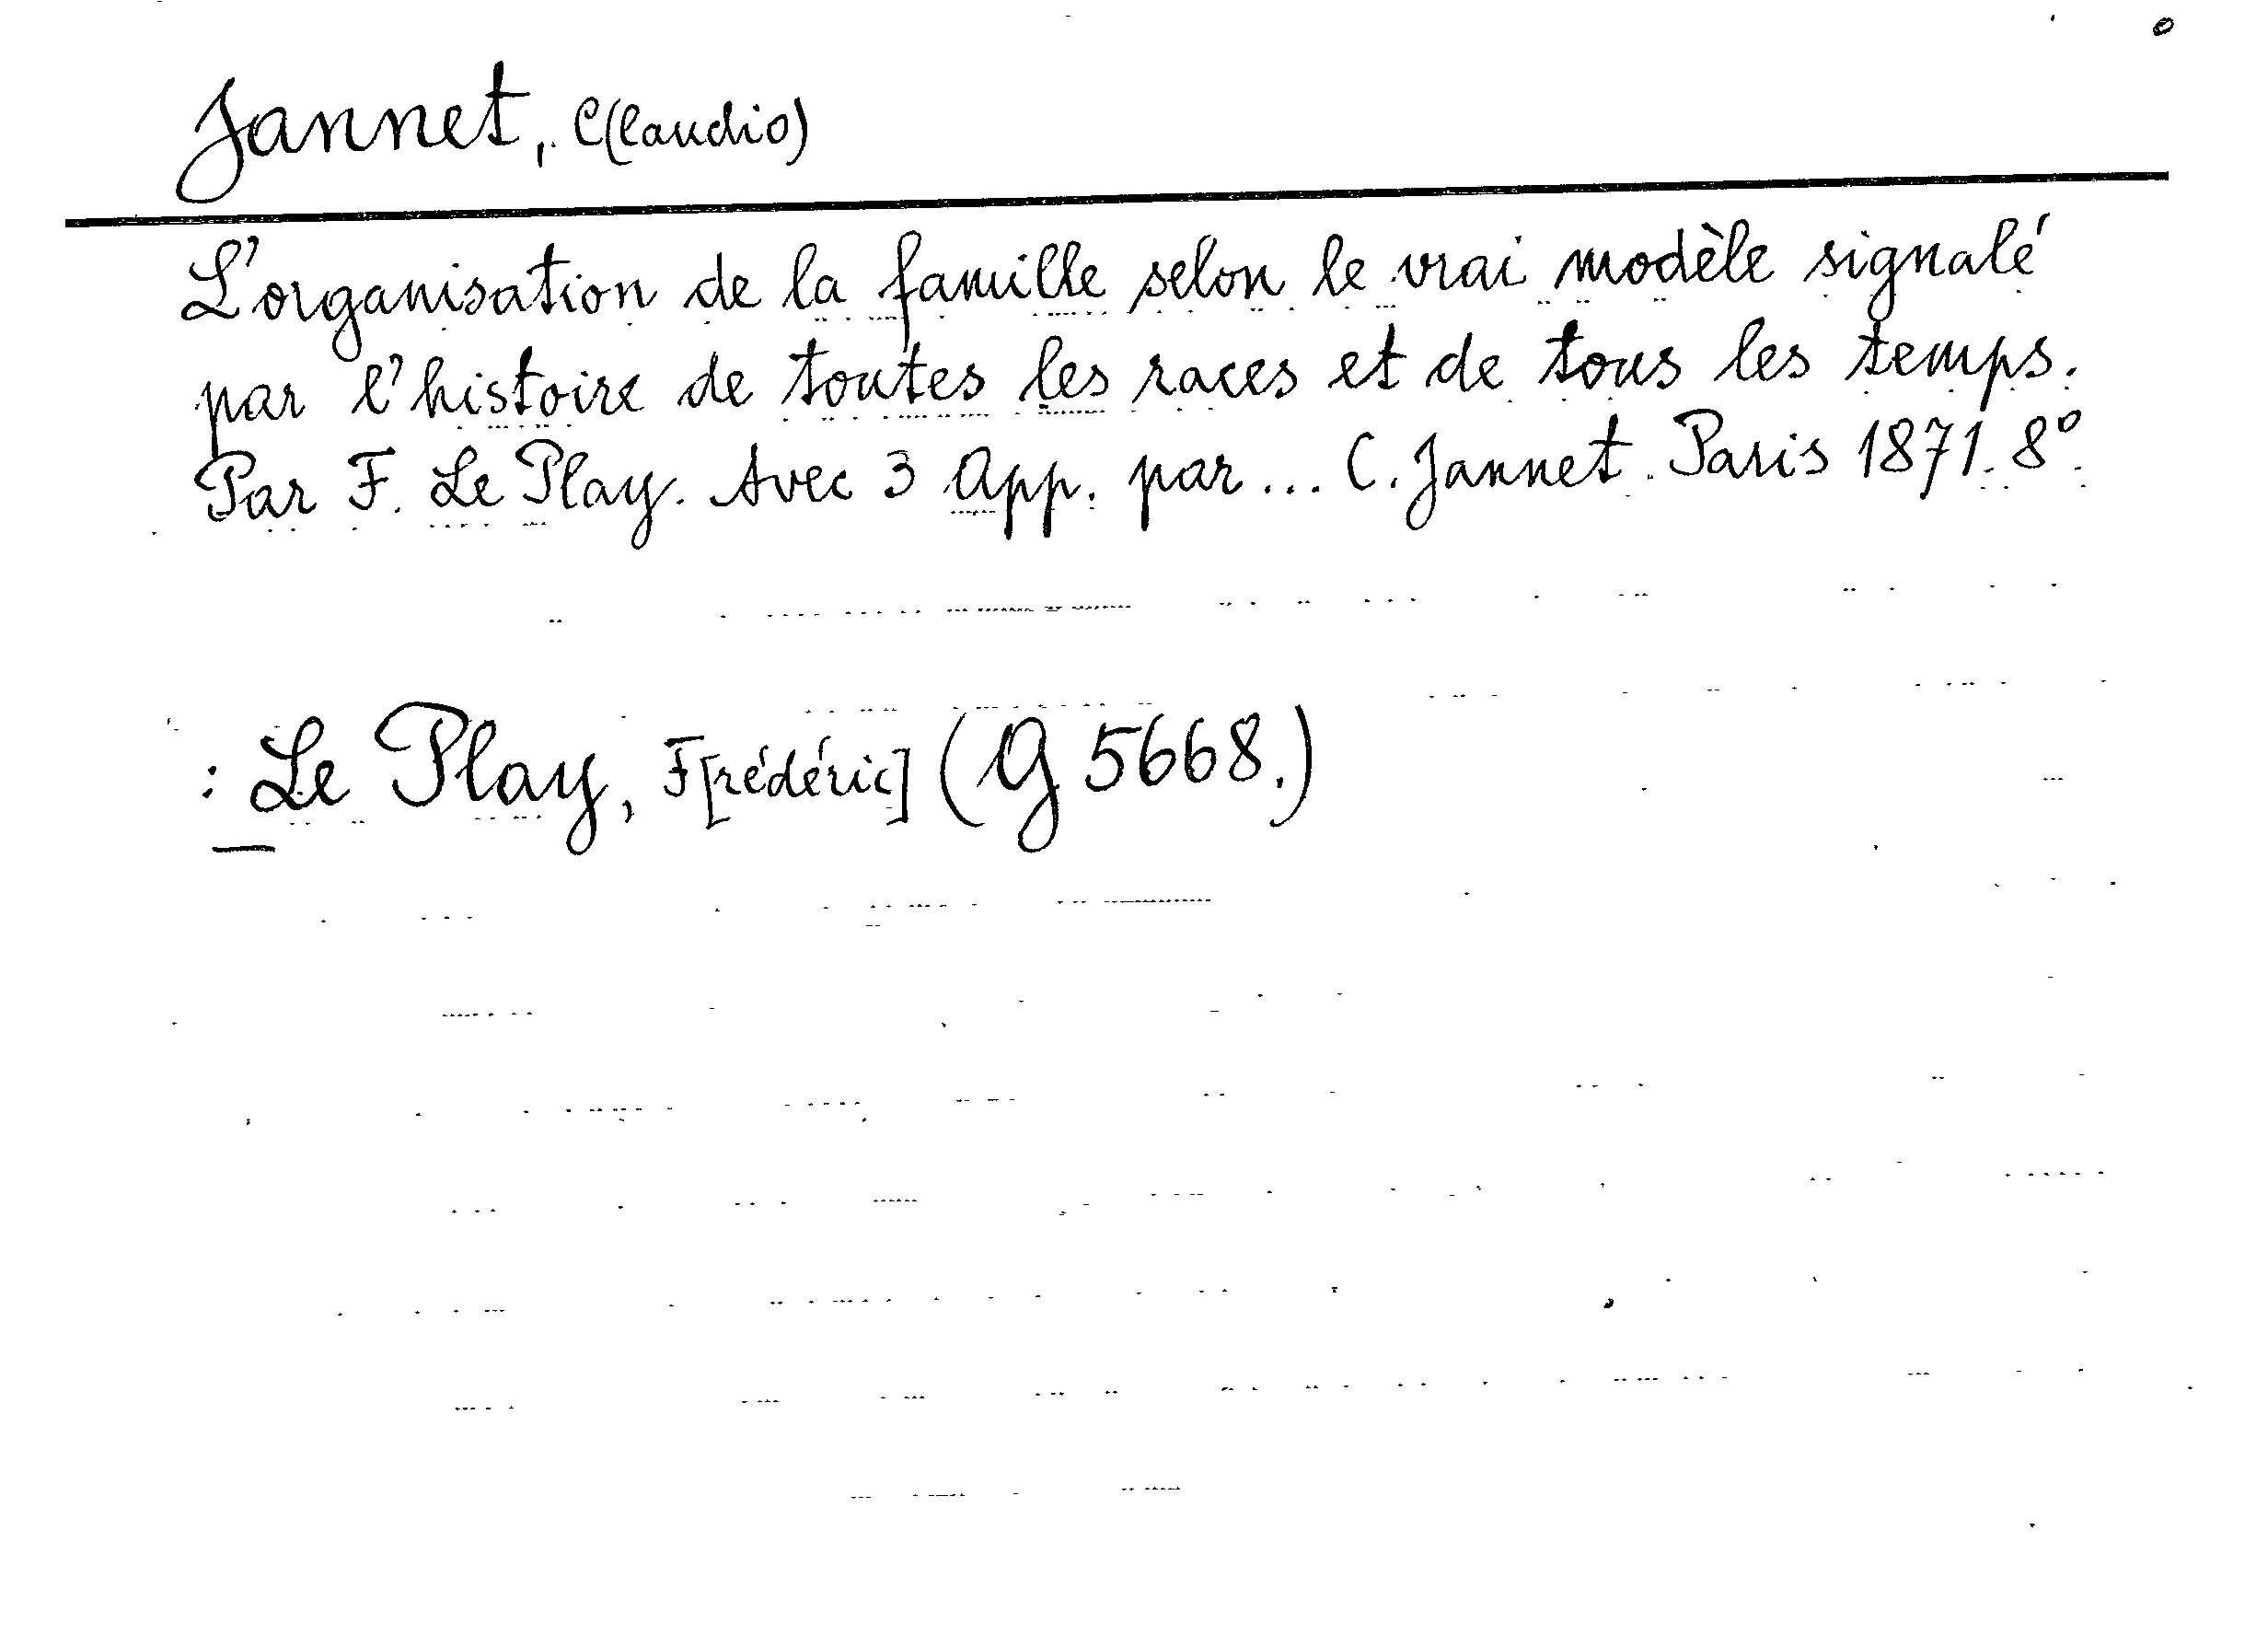 Jannet, C(laudio)
L'organisation de la famille selon le vrai modèle signalé
par l'histoire de toutes les races et de tous les temps.
Par F. Le Play. Avec 3 App. par... C. Jannet. Paris 1871. 8°.
: Le Play, F[rédéric] (G 5668.)